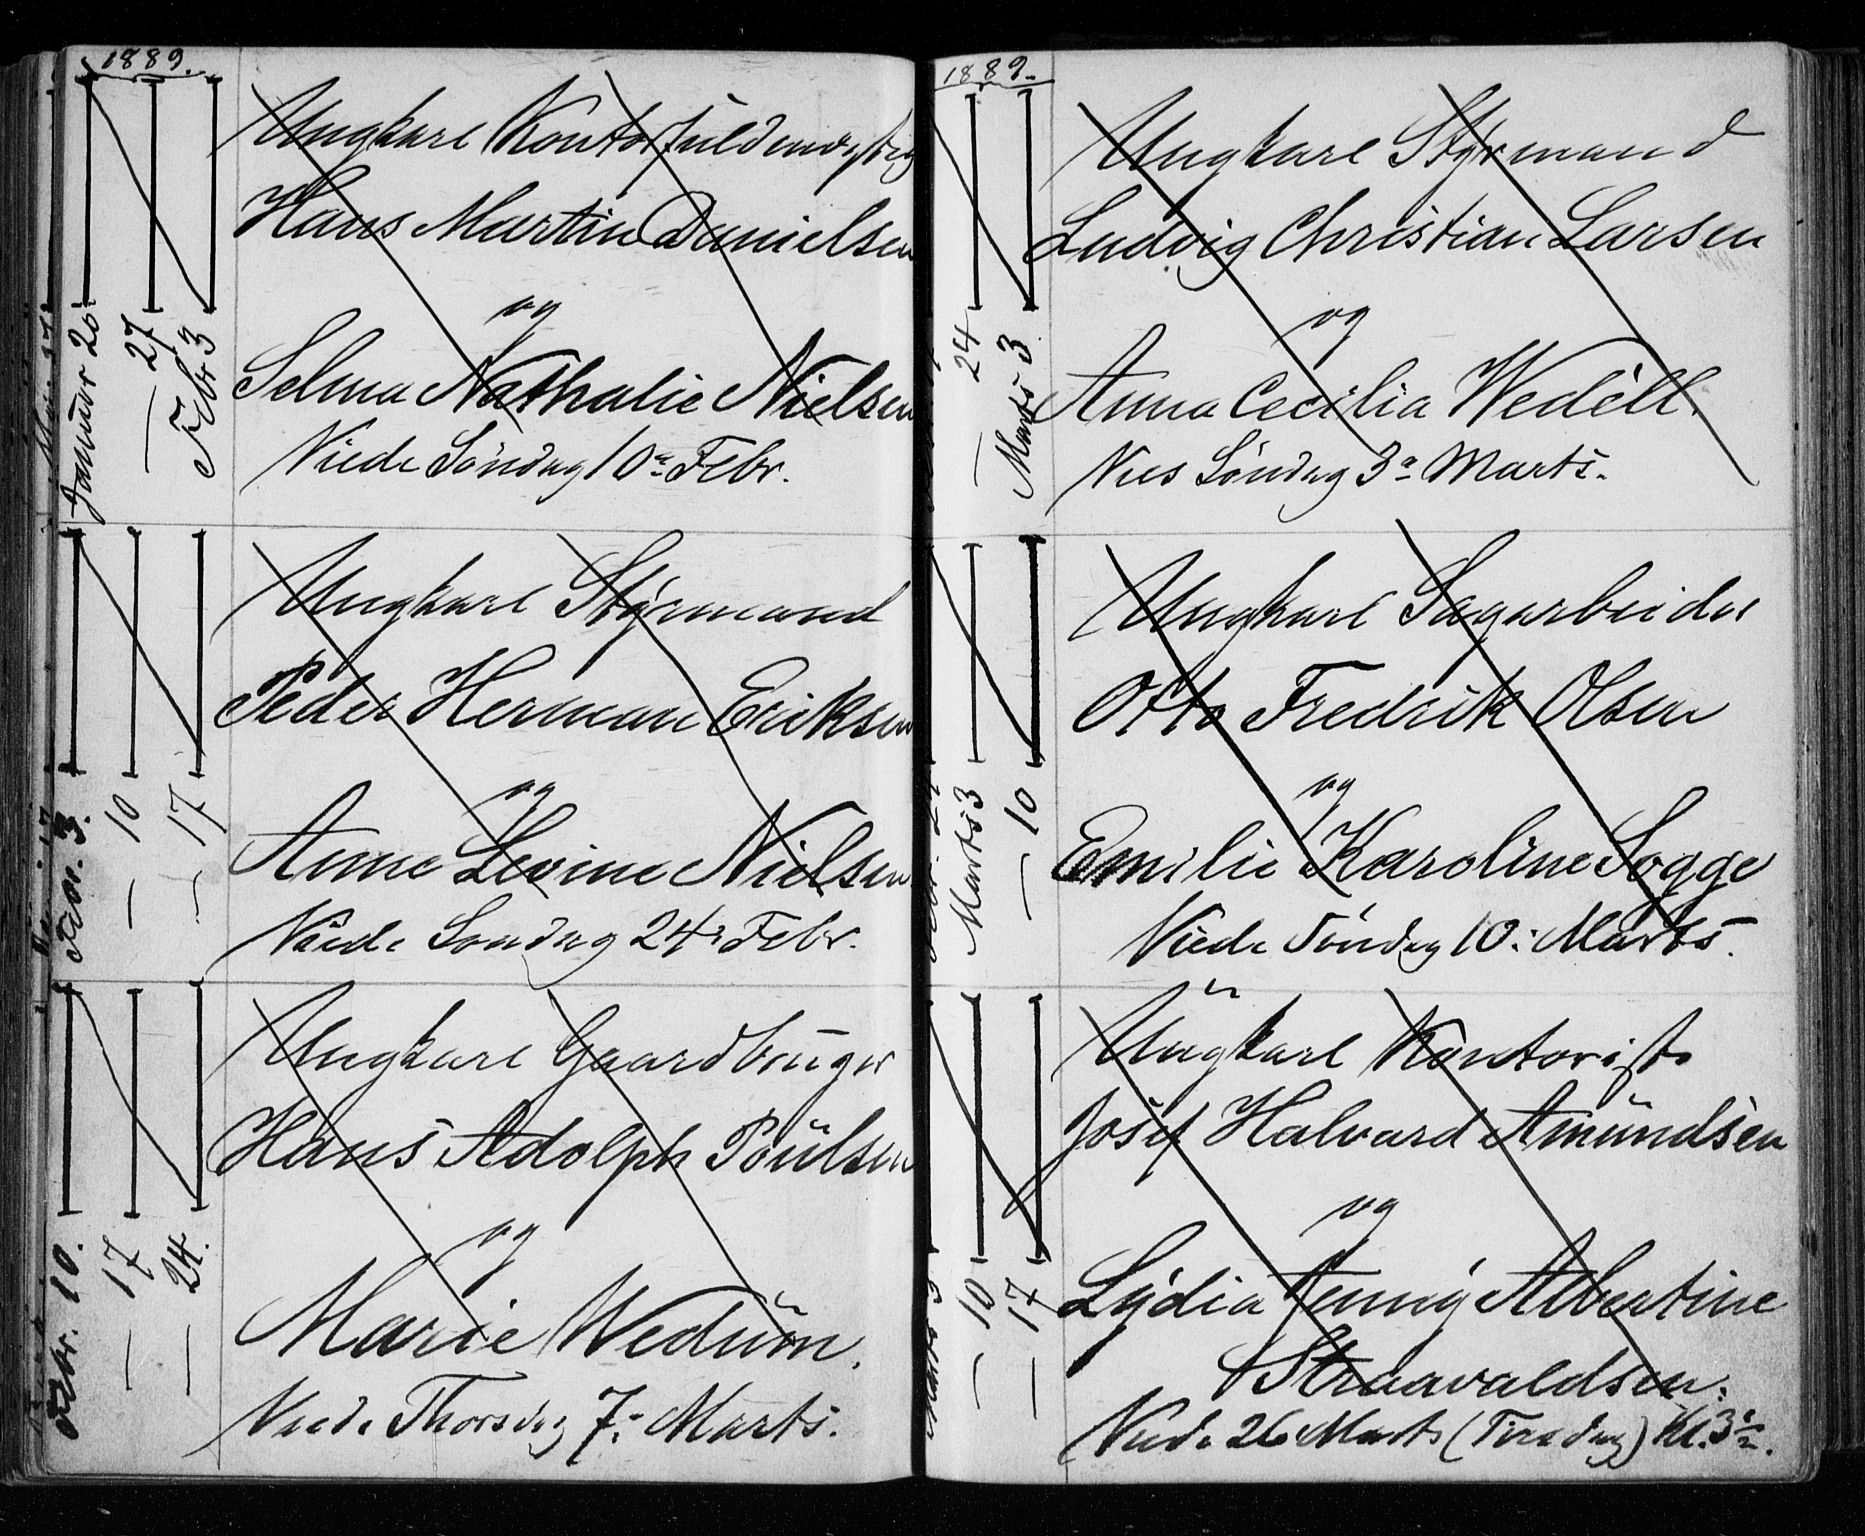 1889.
Januar 20
— 27
Febr 3
Ungkarl Kontorfuldmægtig
Hans Martin Danielsen
og
Selma Nathalie Nielsen
Viede Söndag 10de Febr.
Febr. 3.
— 10
— 17
Ungkarl Styrmand
Peder Herman Eriksen
og
Anne Levine Nielsen
Viede Søndag 24' Febr.
Febr. 10.
— 17
— 24.
Ungkarl Gaardbruger
Hans Adolph Poulsen
og
Marie Wedum.
Viede Thorsdag 7: Marts.
1889.
— 24
Marts 3
Ungkarl Styrmand
Ludvig Christian Larsen
og
Anna Cecilia Wedell.
Vies Söndag 3' Marts.
Marts 3
— 10
Ungkarl Sagarbeider
Otto Fredrik Olsen
og
Emilie Karoline Sogge
Viede Söndag 10: Marts.
Marts 3
— 10
— 17
Ungkarl Kontorist
Josef Halvard Amundsen
og
Lydia Jenny Albertine
Straavaldsen.
Viede 26 Marts (Tirsdag) Kl. 3½.